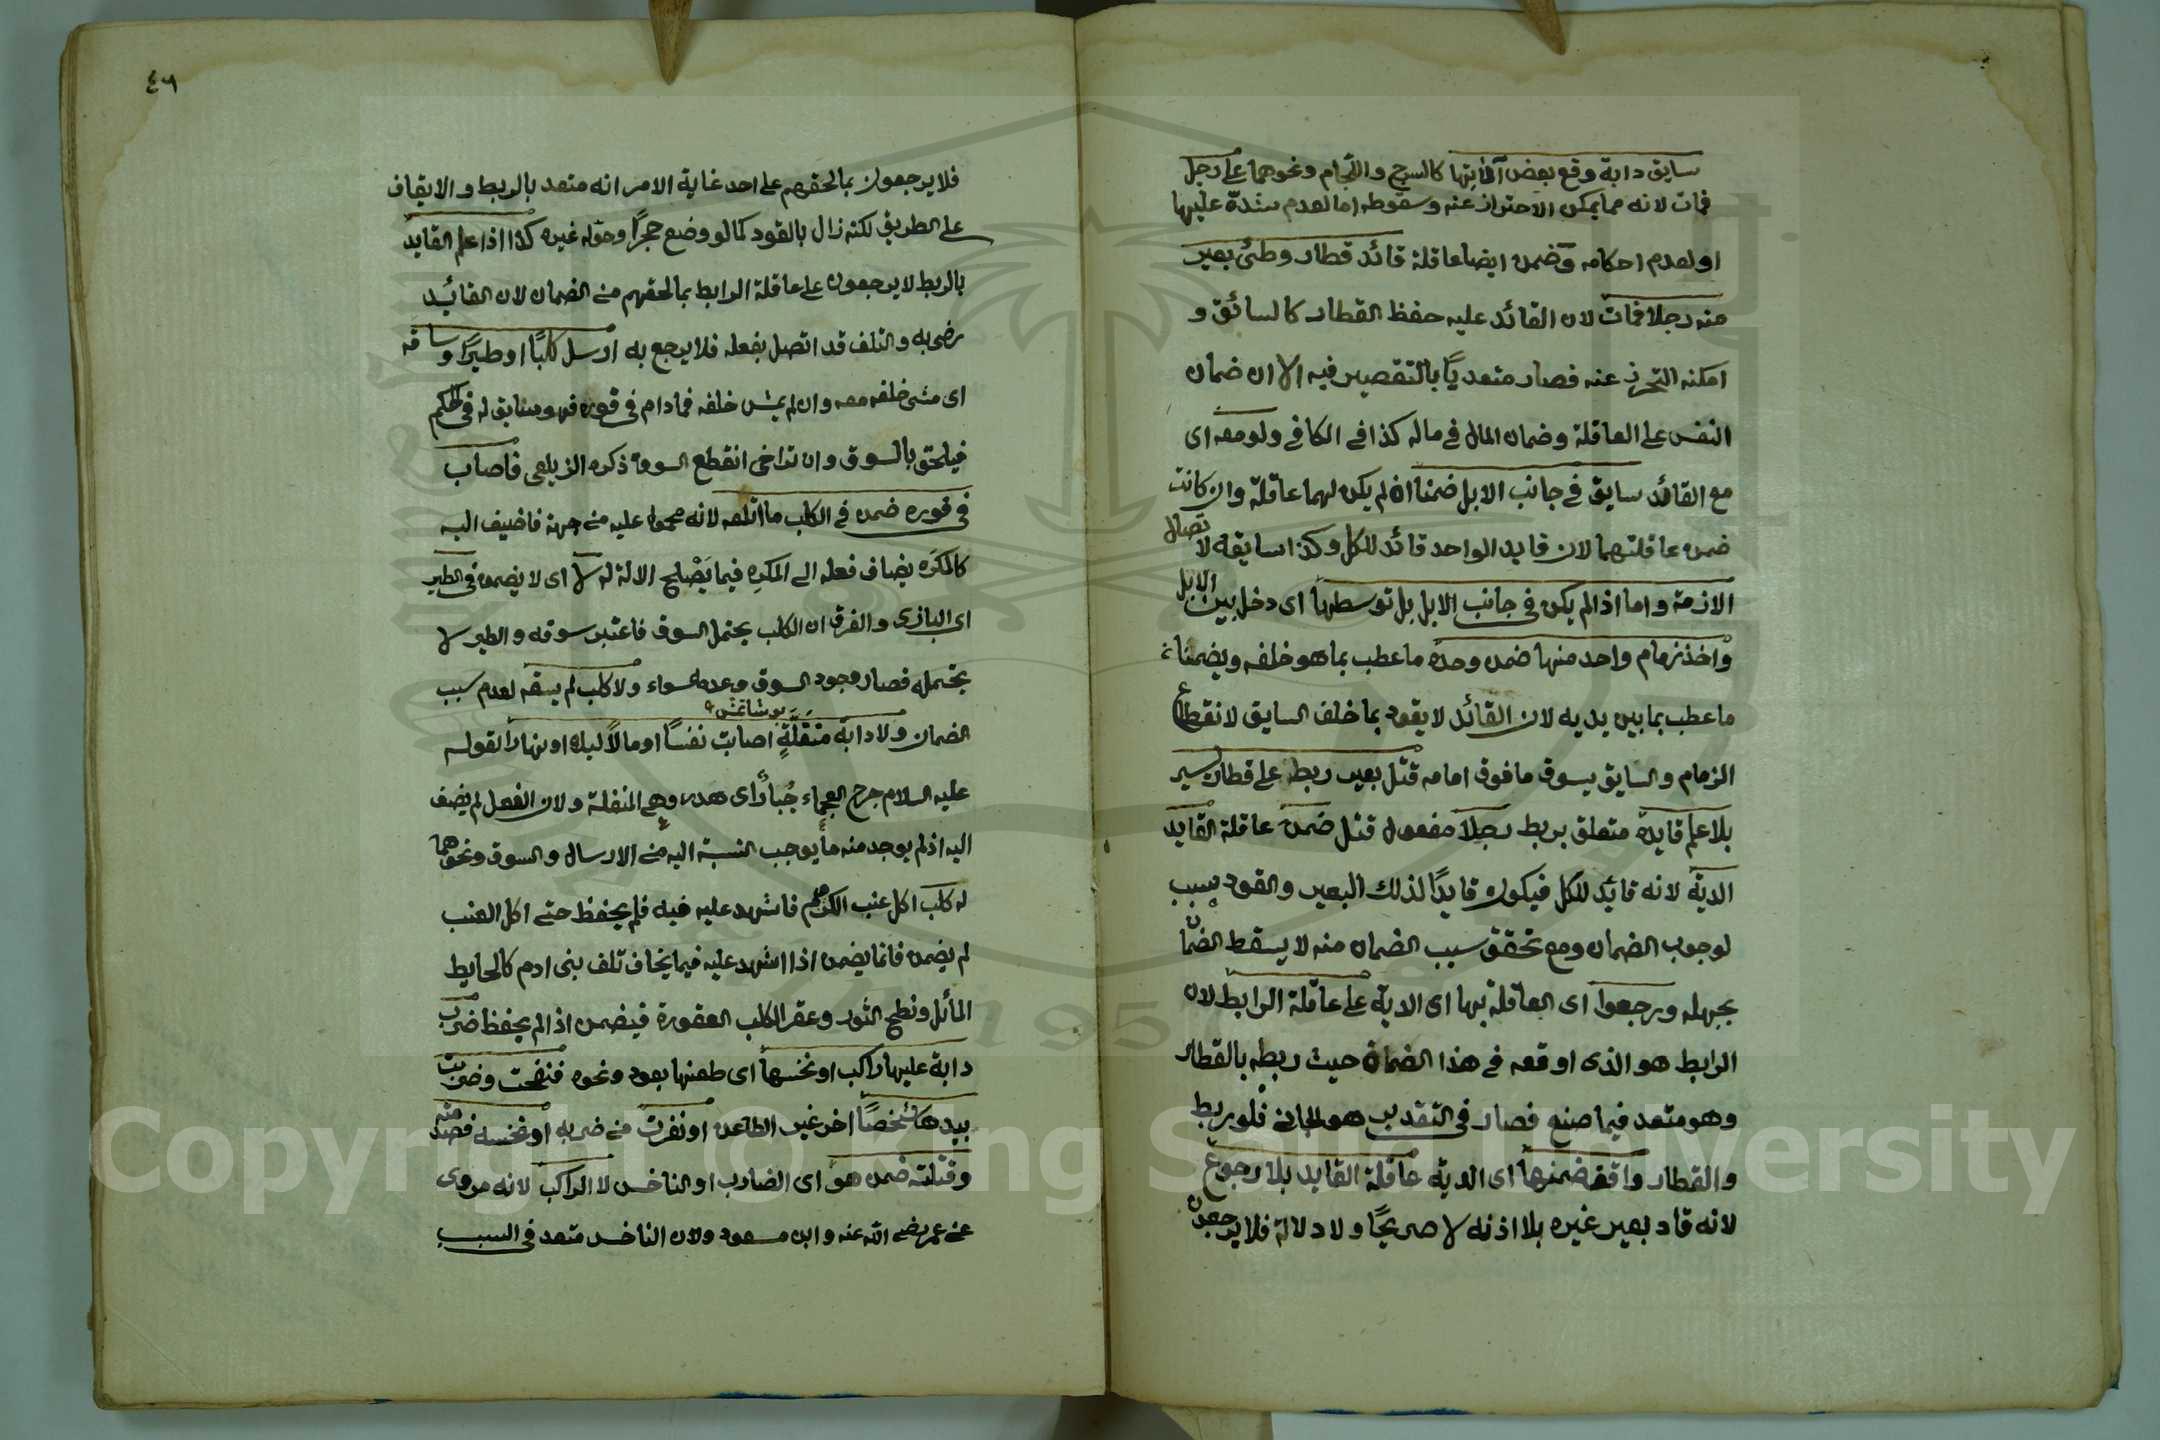 سايق دابة وقع بعض آلاتها كالسرج واللجام ونحوهما على رجل
فمات لانه مما يمكن الاحتراز عنه وسقوطه اما لعدم شدة عليها
او لعدم احكامه وضمن ايضا عاقلة قائد قطار وطئ بعير
منه رجلا فمات لان القائد عليه حفظ القطار كالسائق و
امكنه التحرز عنه فصار متعديًا بالتقصير فيه الا ان ضمان
النفس على العاقلة وضمان المال في ماله كذا في الكافي ولو معه اى
مع القائد سايق في جانب الابل ضمنا ان لم يكن لهما عاقلة وان كانت
ضمن عاقلتهما لان قايد الواحد قائد للكل وكذا سايقه لاتصال
الازمة واما اذا لم يكن في جانب الابل بل توسطها اى دخل بين الابل
واخذ زمام واحد منها ضمن وحده ما عطب بما هو خلفه ويضمنان
ما عطب بما بين يديه لان القائد لا يقود بما خلف السايق لانقطاع
الزمام والسايق يسوق ما فوق امامه قتل بعير ربط على قطار يسير
بلا علم قايده متعلق بربط رجلا مفعول قتل ضمن عاقلة القايد
الدية لانه قايد للكل فيكون قايدًا لذلك البعير والقود سبب
لوجوب الضمان ومع تحقق سبب الضمان منه لا يسقط الضمان
بجهله ورجعوا اى العاقلة بها اى الدية على عاقلة الرابط لان
الرابط هو الذى اوقعه في هذا الضمان حيث ربطه بالقطار
وهو متعد فيما صنع فصار في التقدير هو الجاني فلو ربط
والقطار واقف ضمنها اى الدية عاقلة القايد بلا رجوع
لانه قاد بعير غيره بلا اذنه لا صريحًا ولا دلالة فلا يرجعون
٤٦
فلا يرجعون بما لحقهم على احد غاية الامر انه متعد بالربط والايقاف
على الطريق لكنه زال بالقود كما لو وضع حجرًا وحوله غيره كذا اذا علم القايد
بالربط لا يرجعون على عاقلة الرابط بما لحقهم من الضمان لان القائد
رضى به والتلف قد اتصل بفعله فلا يرجع به ارسل كلبًا او طيرًا وساقه
اى مشى خلفه معه وان لم يمش خلفه فما دام في فوره فهو سابق له في الحكم
فيلحق بالسوق وان تراخى انقطع السوق ذكره الزيلعى فاصاب
في فوره ضمن في الكلب ما اتلفه لانه محمول عليه من جهته فاضيف اليه
كالمكرَه يضاف فعله الى المكرِه فيما يَصْلح الالة له لا اى لا يضمن في الطير
اى البازى والفرق ان الكلب يحتمل السوق فاعتبر سوقه والطير لا
يحتمله فصار وجود السوق وعدمه سواء ولا كلب لم يسقه لعدم سبب
الضمان ولا دابة منفلتة اصابت نفسًا او مالًا ليلا او نهارا لقوله
عليه السلام جرح العجماء جُبارٌ اى هدر وهي المنفلتة ولان الفعل لم يضف
اليه اذ لم يوجد منه ما يوجب النسبة اليه من الارسال والسوق ونحوهما
له كلب اكل عنب الكرم فاشهد عليه فيه فلم يحفظ حتى اكل العنب
لم يضمن فانما يضمن اذا اشهد عليه فيما يخاف تلف بنى ادم كالحايط
المائل ونطح الثور وعقر الكلب العقورة فيضمن اذا لم يحفظ ضرب
دابة عليها راكب او نخسها اى طعنها بعود ونحوه فنفحت وضربت
بيدها شخصًا اخر غير الطاعن او نفرت من ضربه او نخسه فصدمته
وقتلته ضمن هو اى الضارب او الناخس لا الراكب لانه مروى
عن عمر رضى الله عنه وابن مسعود ولان الناخس متعد في السبب